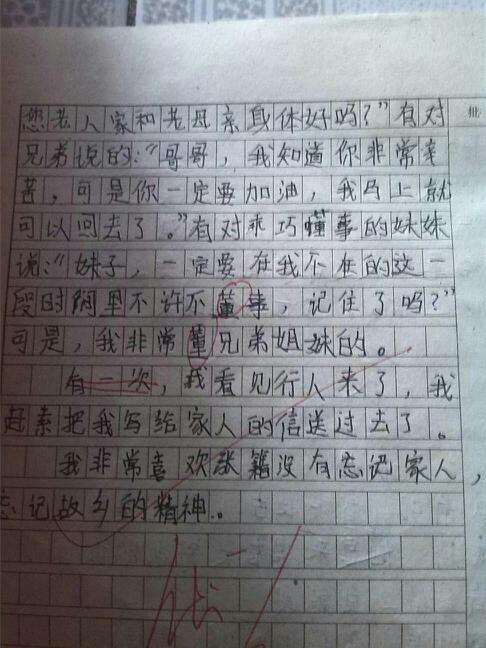 您老人家和老母亲身体好吗？”有对
批
兄弟说的：“哥哥，我知道你非常辛
苦，可是你一定要加油，我马上就
可以回去了。”有对乖巧懂事的妹妹
说：“妹子，一定要在我不在的这一
段时间里不许不董事，记住了吗？”
可是，我非常董兄弟姐妹的。
有一次，我看见行人来了，我
赶索把我写给家人的信送过去了。
我非常喜欢张籍没有忘记家人，
忘记故乡的精神。